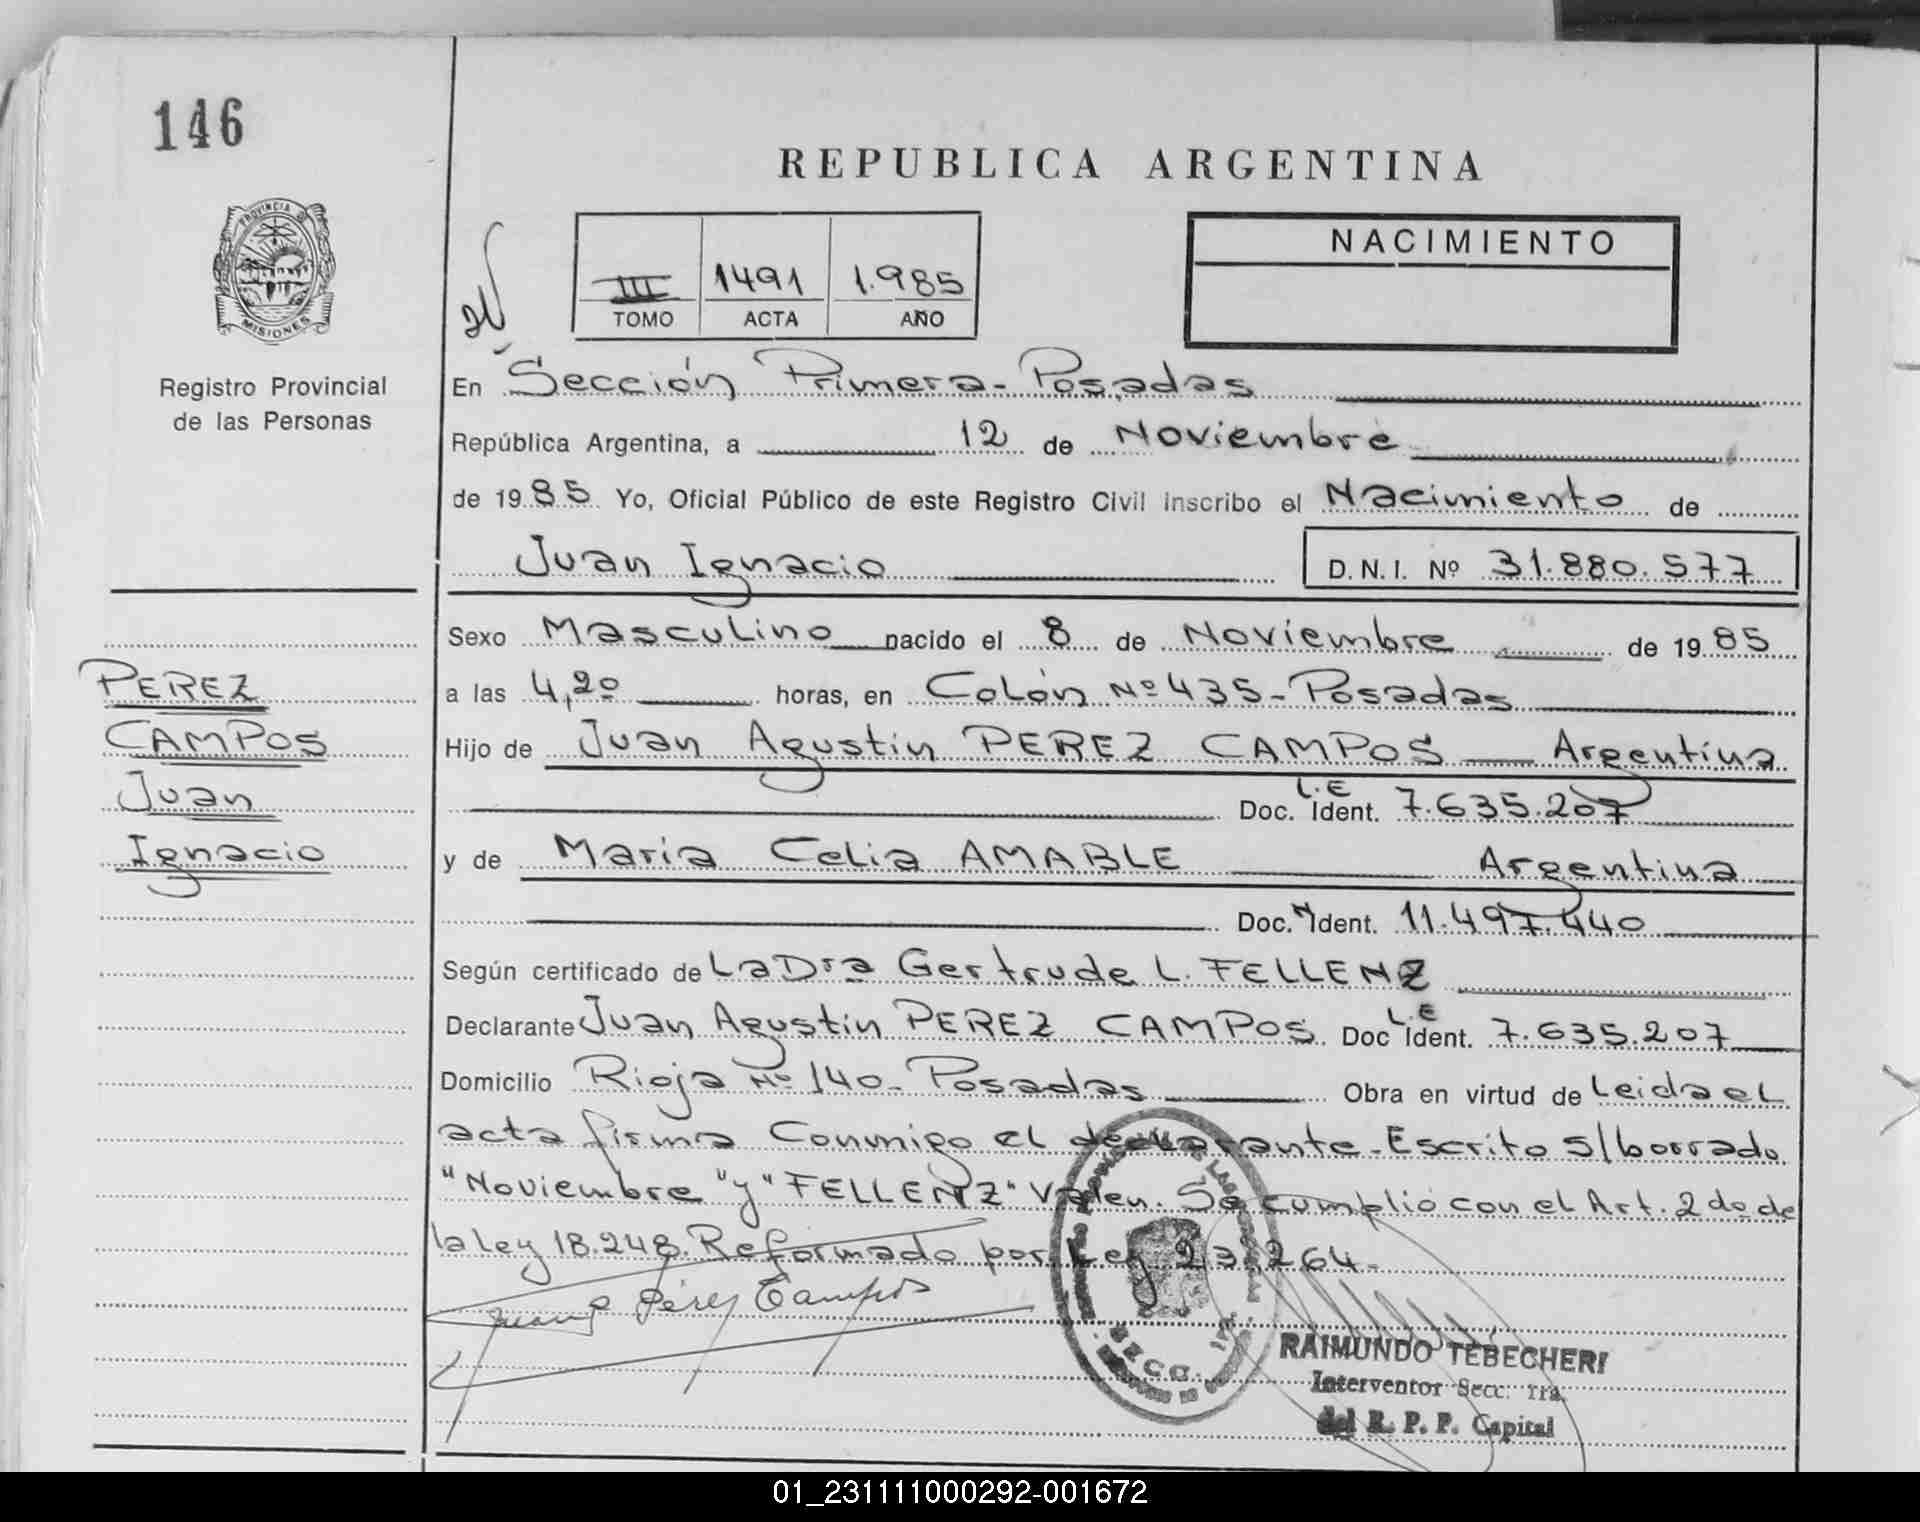 146
REPUBLICA ARGENTINA
PROVINCIA DE
MISIONES
Registro Provincial
de las Personas
III 1491 1.985
TOMO ACTA AÑO
NACIMIENTO
En Sección Primera - Posadas
República Argentina, a 12 de Noviembre
de 1985 Yo, Oficial Público de este Registro Civil inscribo el Nacimiento de
Juan Ignacio D.N.I. Nº 31.880.577
Sexo Masculino nacido el 8 de Noviembre de 1985
PEREZ
CAMPOS
Juan
Ignacio
a las 4,20 horas, en Colón Nº 435 - Posadas
Hijo de Juan Agustín PEREZ CAMPOS Argentina
Doc. L.E Ident. 7.635.207
y de Maria Celia AMABLE Argentina
Doc. Ident. 11.497.440
Según certificado de La Dra Gertrude L. FELLENZ
Declarante Juan Agustín PEREZ CAMPOS. Doc L.E Ident. 7.635.207
Domicilio Rioja Nº 140 - Posadas Obra en virtud de Leida el
acta firma Conmigo el declarante - Escrito s/borrado
"Noviembre" y "FELLENZ" Valen. Se cumplió con el Art. 2do de
la Ley 18.248. Reformado por Ley 23.264.-
Pérez Campos
RAIMUNDO TEBECHERI
Interventor Secc. 1ra.
del R. P. P. Capital
01_231111000292-001672